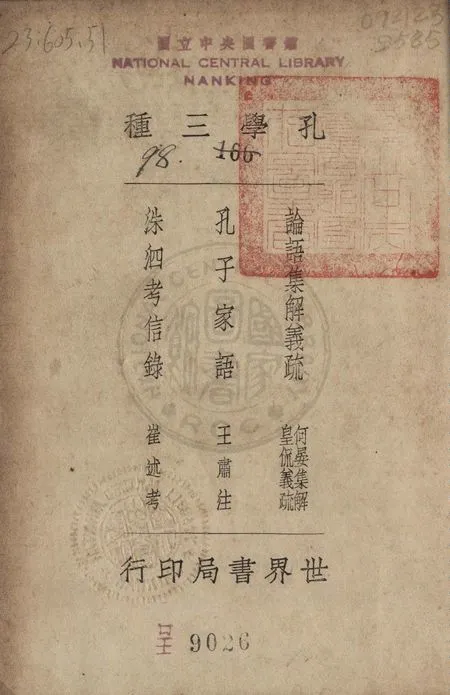 23.605.51
國立中央圖書館
NATIONAL CENTRAL LIBRARY
NANKING
孔學三種
98. 166
論語集解義疏 何晏集解 皇侃義疏
孔子家語 王肅注
洙泗考信錄 崔述考
世界書局印行
9026